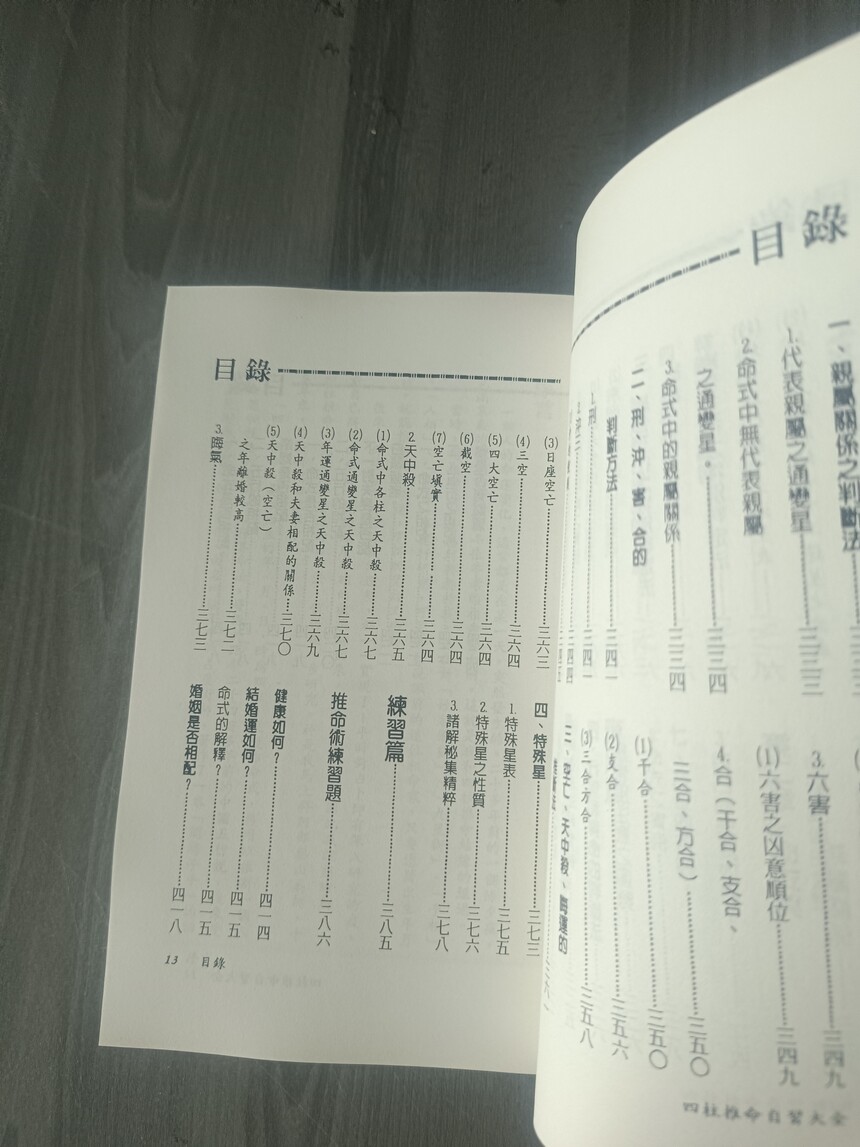 目錄
一、親屬關係之判斷法
1.代表親屬之通變星……三三三
2.命式中無代表親屬
之通變星。……三三四
3.命式中的親屬關係……三三四
二、刑、沖、害、合的
判斷方法……三四一
1.刑……三四一
3.六害……三四九
(1)六害之凶意順位……三四九
4.合（干合、支合、
三合、方合）……三五〇
(1)干合……三五〇
(2)支合……三五六
(3)三合方合……三五八
三、空亡、天中殺、晦運的
四柱推命自習大全
目錄
(3)日座空亡……三六三
(4)三空……三六四
(5)四大空亡……三六四
(6)截空……三六四
(7)空亡塡實……三六四
2.天中殺……三六五
(1)命式中各柱之天中殺……三六七
(2)命式通變星之天中殺……三六七
(3)年運通變星之天中殺……三六九
(4)天中殺和夫妻相配的關係…三七〇
(5)天中殺（空亡）
之年離婚較高……三七二
3.晦氣……三七三
四、特殊星……三七三
1.特殊星表……三七五
2.特殊星之性質……三七六
3.諸解秘集精粹……三七八
練習篇……三八五
推命術練習題……三八六
健康如何？……四一四
結婚運如何？……四一五
命式的解釋？……四一五
婚姻是否相配？……四一八
13 目錄